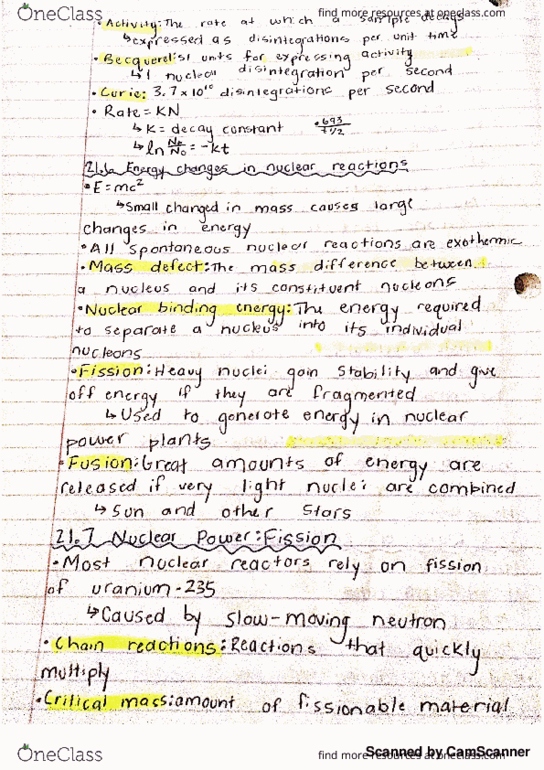 OneClass
find more resources at oneclass.com
• Activity: The rate at which a sample decays
↳ expressed as disintegrations per unit time
• Becquerels: units for expressing activity
↳ 1 nuclear disintegration per second
• Curie: 3.7x10¹⁰ disintegrations per second
• Rate = KN
↳ K = decay constant • .693/t1/2
↳ ln Nt/No = -kt
21.6 Energy changes in nuclear reactions
• E=mc²
↳ Small changed in mass causes large
changes in energy
• All spontaneous nuclear reactions are exothermic
• Mass defect: The mass difference between
a nucleus and its constituent nucleons
• Nuclear binding energy: The energy required
to separate a nucleus into its individual
nucleons
• Fission: Heavy nuclei gain stability and give
off energy if they are fragmented
↳ Used to generate energy in nuclear
power plants
• Fusion: Great amounts of energy are
released if very light nuclei are combined
↳ Sun and other stars
21.7 Nuclear Power: Fission
• Most nuclear reactors rely on fission
of uranium-235
↳ Caused by slow-moving neutron
• Chain reactions: Reactions that quickly
multiply
• Critical mass: amount of fissionable material
OneClass
find more resources at oneclass.com
Scanned by CamScanner